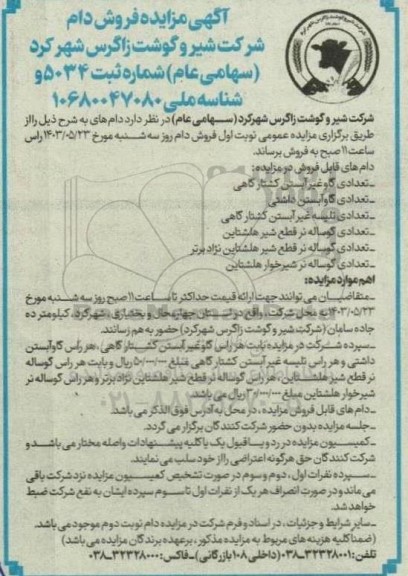 آگهی مزایده فروش دام
شرکت شیر و گوشت زاگرس شهر کرد
(سهامی عام) شماره ثبت ۵۰۳۴ و
شناسه ملی ۱۰۶۸۰۰۴۷۰۸۰
شرکت شیر و گوشت زاگرس شهرکرد (سهامی عام) در نظر دارد دام‌های به شرح ذیل را از
طریق برگزاری مزایده عمومی نوبت اول فروش دام روز سه شنبه مورخ ۱۴۰۳/۰۵/۲۳ راس
ساعت ۱۱ صبح به فروش برساند.
دام های قابل فروش در مزایده:
ـ تعدادی گاو غیر آبستن کشتار گاهی
ـ تعدادی گاو آبستن داشتی
ـ تعدادی تلیسه غیر آبستن کشتار گاهی
ـ تعدادی گوساله نر قطع شیر هلشتاین
ـ تعدادی گوساله نر قطع شیر هلشتاین نژاد برتر
ـ تعدادی گوساله نر شیرخوار هلشتاین
اهم موارد مزایده:
ـ متقاضیان می توانند جهت ارائه قیمت حداکثر تا ساعت ۱۱ صبح روز سه شنبه مورخ
۱۴۰۳/۰۵/۲۳ به محل شرکت، واقع در استان چهارمحال و بختیاری ـ شهرکرد، کیلومتر ده
جاده سامان (شرکت شیر و گوشت زاگرس شهرکرد) حضور به هم رسانند.
ـ سپرده شرکت در مزایده بابت هر راس گاو غیر آبستن کشتار گاهی، هر راس گاو آبستن
داشتی و هر راس تلیسه غیر آبستن کشتار گاهی مبلغ ۵۰/۰۰۰/۰۰۰ ریال و بابت هر راس گوساله
نر قطع شیر هلشتاین، هر راس گوساله نر قطع شیر هلشتاین نژاد برتر و هر راس گوساله نر
شیرخوار هلشتاین مبلغ ۳۰/۰۰۰/۰۰۰ ریال می باشد.
ـ دام های قابل فروش مزایده، در محل به آدرس فوق الذکر می باشد.
ـ جلسه مزایده بدون حضور شرکت کنندگان برگزار می گردد.
ـ کمیسیون مزایده در رد و یا قبول یک یا کلیه پیشنهادات واصله مختار می باشد و
شرکت کنندگان حق هرگونه اعتراضی را از خود سلب می نمایند.
ـ سپرده نفرات اول، دوم و سوم در صورت تشخیص کمیسیون مزایده نزد شرکت باقی
می ماند و در صورت انصراف هر یک از نفرات اول تا سوم سپرده ایشان به نفع شرکت ضبط
خواهد شد.
ـ سایر شرایط و جزئیات، در اسناد و فرم شرکت در مزایده دام نوبت دوم موجود می باشد.
(ضمنا کلیه هزینه های مربوط به مزایده مذکور، بر عهده برندگان مزایده می باشد)
تلفن: ۳۲۳۲۸۰۰۱-۰۳۸ (داخلی ۱۰۸ بازرگانی) ـ فاکس: ۳۲۳۲۸۰۰۰-۰۳۸